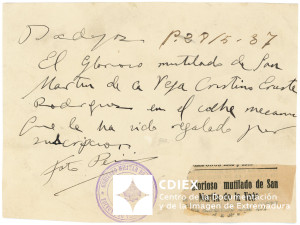 Badajoz P. 27/5-37
El Glorioso mutilado de San
Martin de la Vega Cristino
Rodriguez en el coche mecanico
que le ha sido regalado por
suscripcion.
Foto
Glorioso mutilado de San
Martín de la Vega
CDIEX
Centro de la Documentación
y de la Imagen de Extremadura